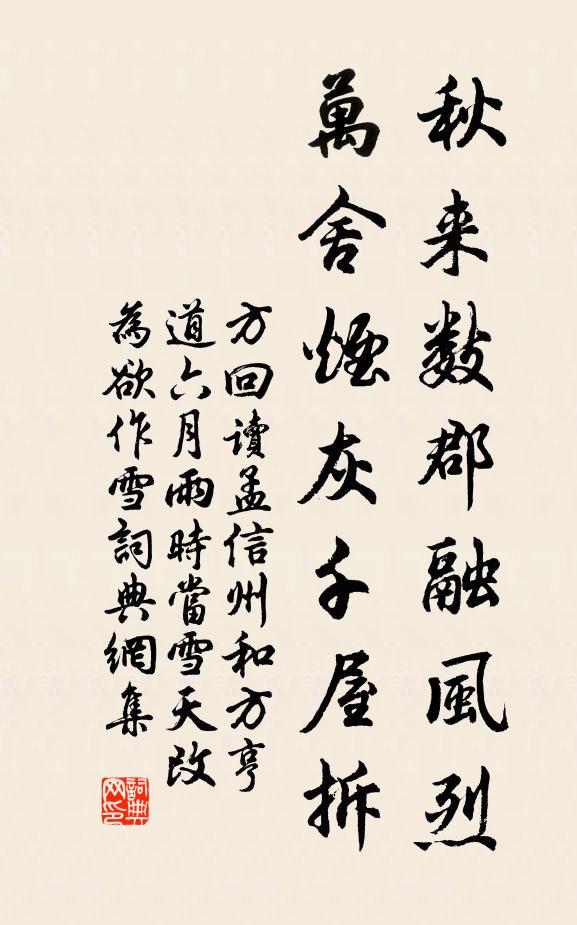 秋来數郡融風烈
萬舍煙灰千屋拆
方回讀孟信州和方亨
道六月雨時當雪天改
為欲作雪詞典網集
詞典网印